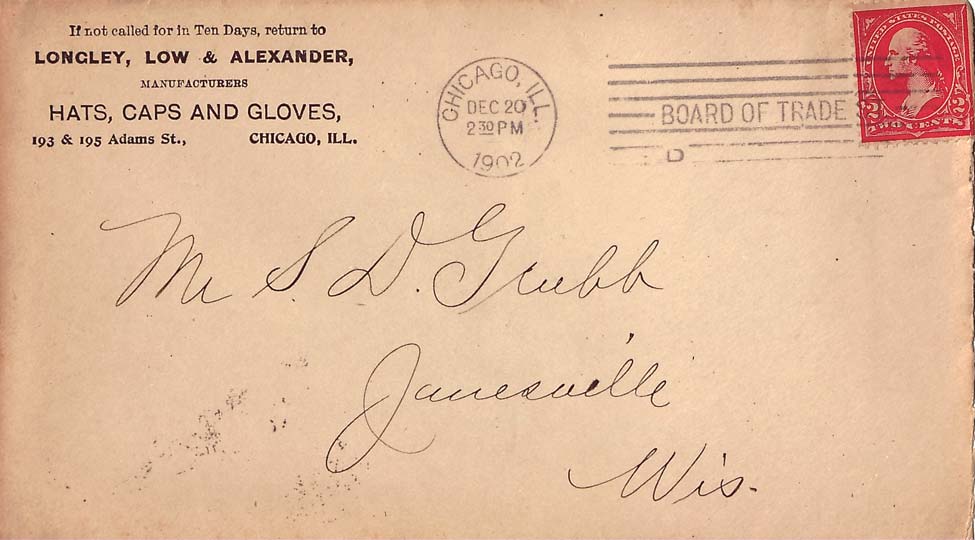 If not called for in Ten Days, return to
LONGLEY, LOW & ALEXANDER,
MANUFACTURERS
HATS, CAPS AND GLOVES,
193 & 195 Adams St., CHICAGO, ILL.
CHICAGO, ILL.
DEC 20
2 30 PM
1902
BOARD OF TRADE
D
UNITED STATES POSTAGE
2 2
TWO CENTS
Mr S. D. Grubb
Janesville
Wis.